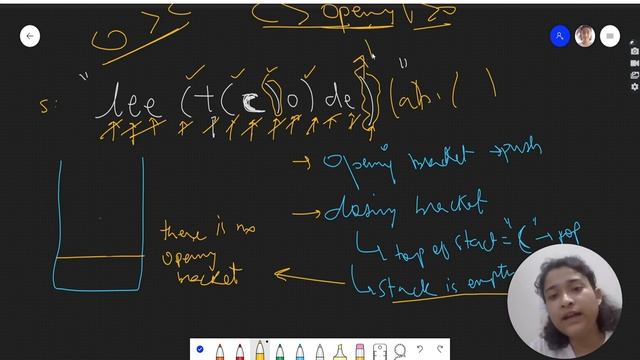 ( > opening ) > 0
s: "lee (t(c)o)de)" (ab.( )
→ opening bracket → push
→ closing bracket
↳ top of stack = "(" → pop
↳ stack is empty
there is no
opening
bracket